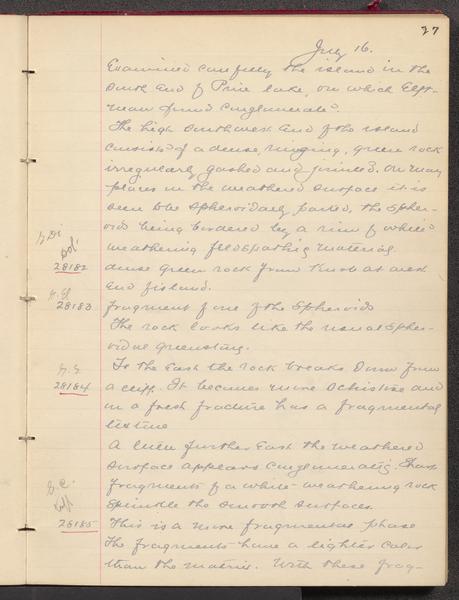 27
July 16.
Examined carefully the island in the
South End of Pine lake, on which Eleft-
man found Conglomerate.
The high Southwest End of the island
Consists of a dense, ringing, green rock
irregularly gashed and jointed. On many
places in the weathered surface it is
seen to be spheroidaly parted, the spher-
oids being bordered by a rim of white
weathering feldspathic material.
28182 dense green rock from Knob at west
End of island.
28183 fragment of one of the Spheroids
The rock looks like the usual spher-
oidal greenstone.
To the East the rock breaks down from
28184 a cliff. It becomes more schistose and
in a fresh fracture has a fragmental
texture
A little further East the weathered
surface appears Conglomeratic. Sharp
fragments of a white-weathering rock
sprinkle the smooth surfaces.
28185 This is a more fragmental phase
The fragments have a lighter color
than the matrix. With these frag-